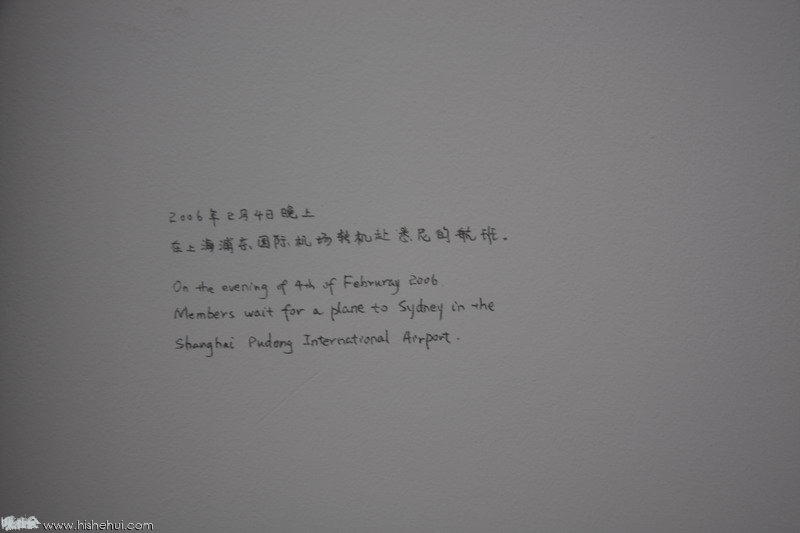 2006年2月4日晚上
在上海浦东国际机场转机赴悉尼的航班。
On the evening of 4th of Februray 2006
Members wait for a plane to Sydney in the
Shanghai Pudong International Airport.
www.hishehui.com